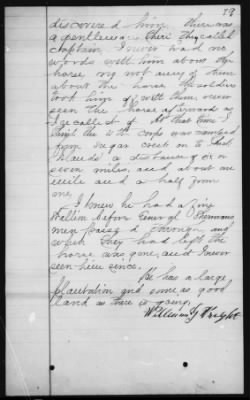 29
discovered him, there was
a gentleman there they called
Captain, I never had no
words with him about the
horse, nor not any of them
about the horse. the soldiers
took him off with them, never
seen the horse afterwards as
I recollect of. At that time I
think the 15th Corps was camped
from Sugar Creek on to
a distance of six or
seven miles, and about one
mile and a half from
me.
I knew he had a fine
Stallion before General Shermans
men passed through and
when they had left the
horse was gone, and I never
seen him since.
He has a large
plantation and some as good
land as there is going.
William Knight